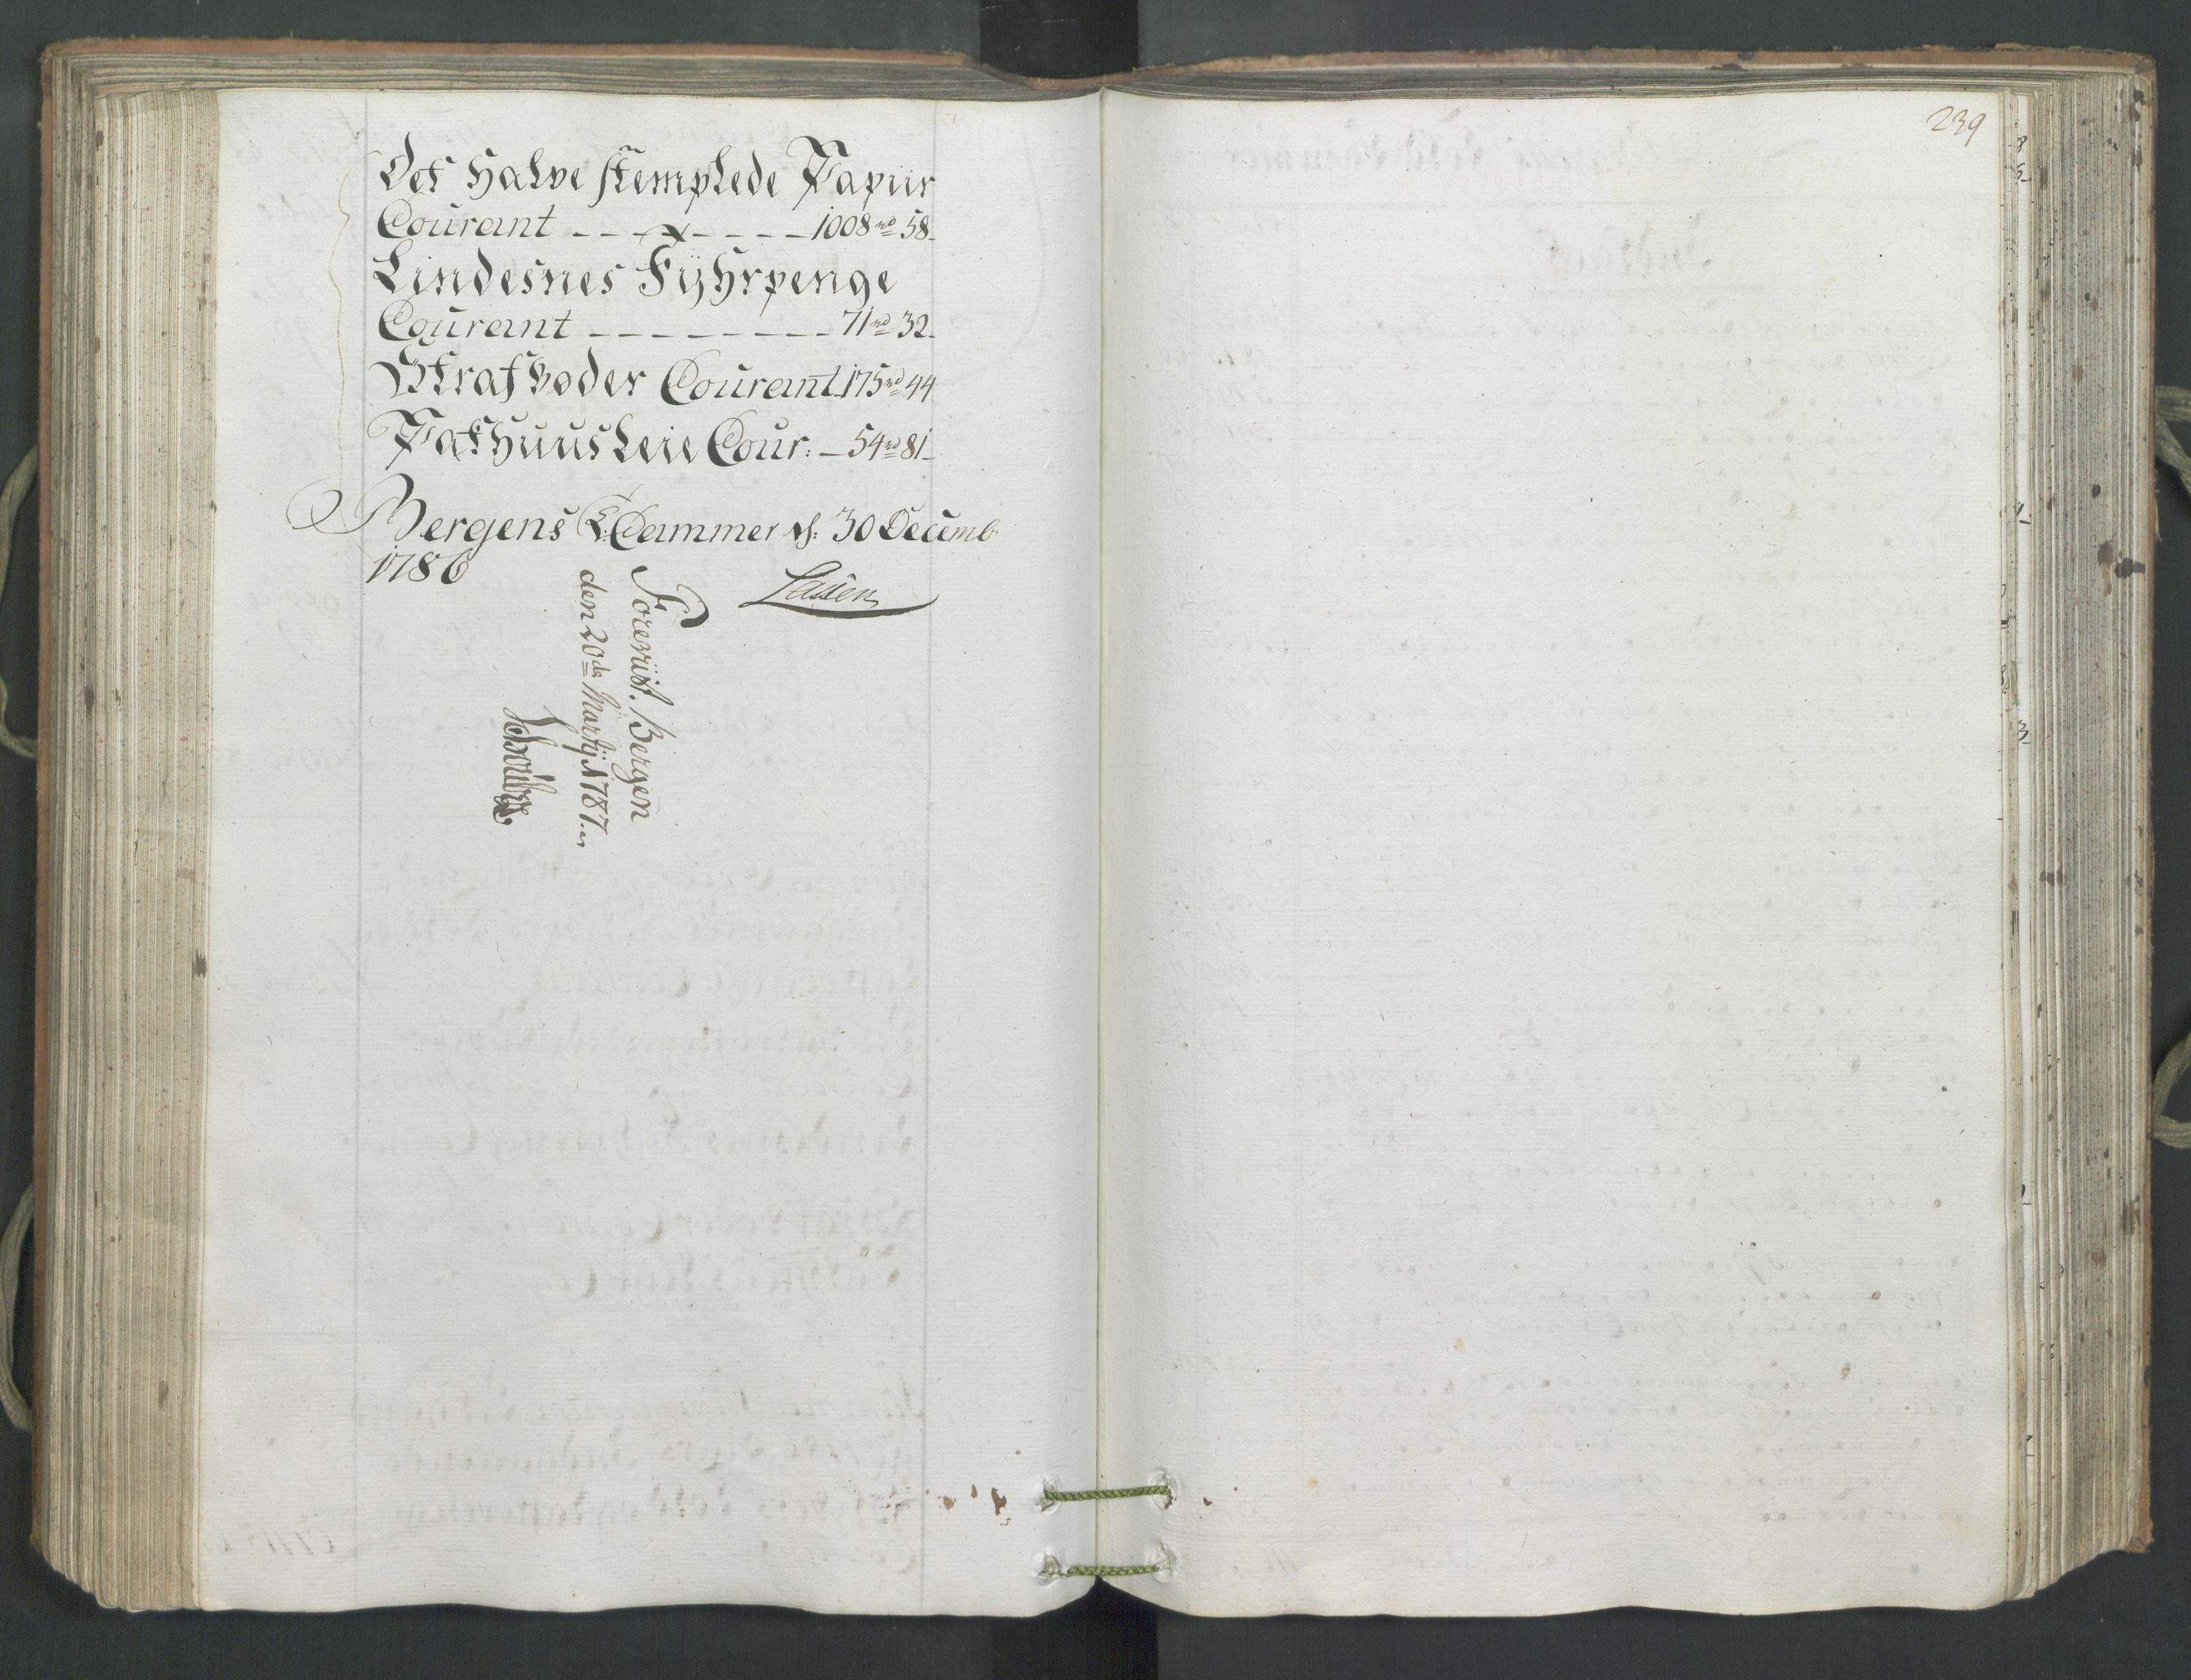 Det Halve stemplede Papiir
Courant ‒ ‒ ‒ ‒ ‒ ‒ ‒ 1008 rd 58
Lindesnes Fÿhrpenge
Courant ‒ ‒ ‒ ‒ ‒ ‒ ‒ ‒ 71 rd 32
Straf boder Courant 175 rd 44
PakHuusLeie Cour: ‒ 54 rd 81
Bergens T: Cammer d: 30 Decemb
1786
Foreviist. Bergen
den 20de Martij 1787.
239